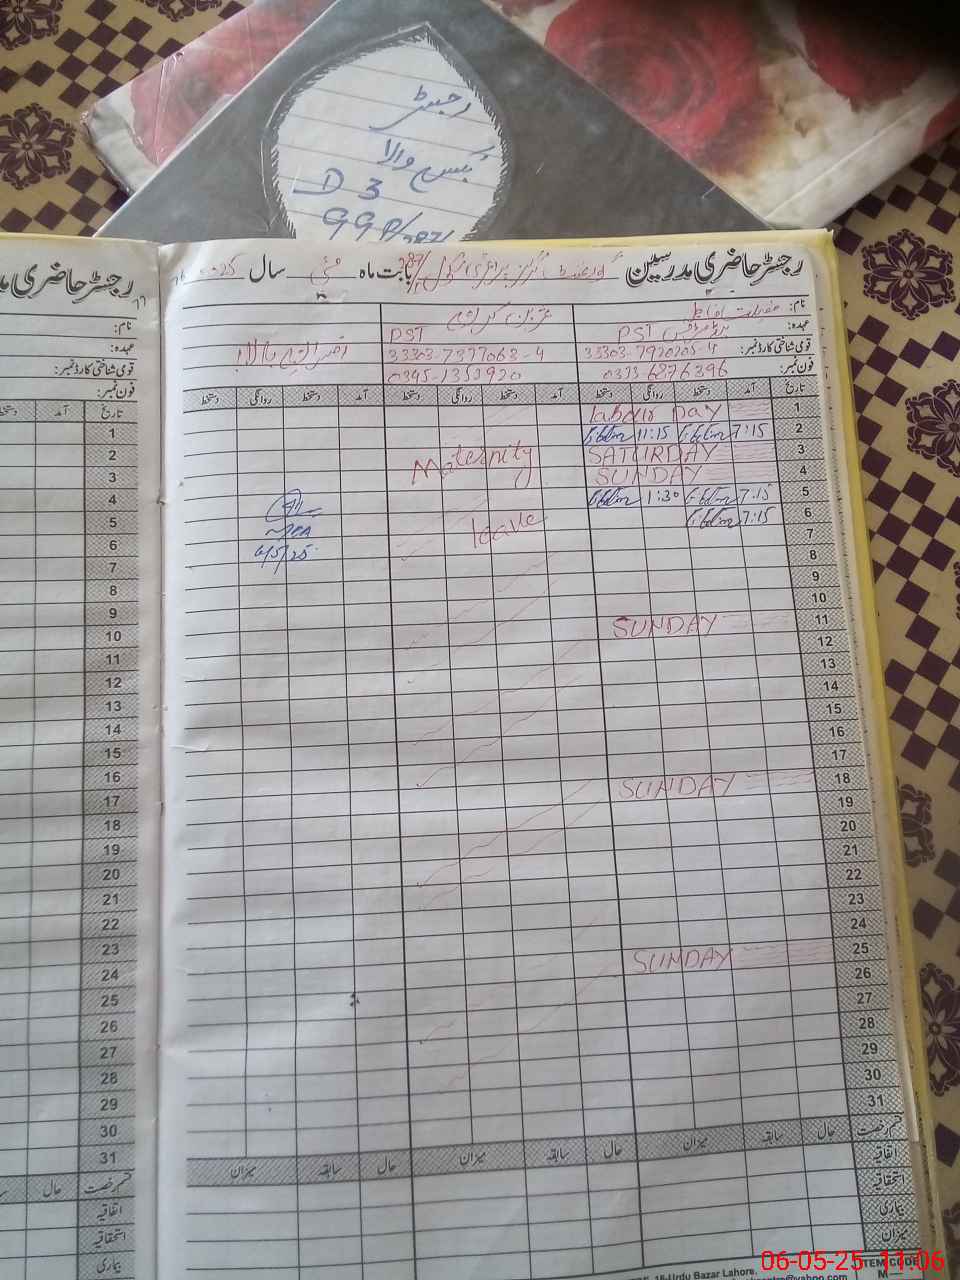 رجسٹر
بکس والا
D 3
99 P/287/
رجسٹر حاضری مدرسین گورنمنٹ گرلز پرائمری سکول 287/ بابت ماہ مئی سال 2025
نام:
عہدہ: PST PST
قومی شناختی کارڈ نمبر: 33303-7920705-4 33303-7377068-4
فون نمبر: 0333-6876396 0345-1353920
تاریخ آمد دستخط روانگی دستخط آمد دستخط روانگی دستخط آمد دستخط روانگی دستخط
1 labour DAY
2 7:15 11:15
3 SATURDAY Maternity
4 SUNDAY
5 7:15 1:30
6 7:15 leave
7 6/5/25
8
9
10
11 SUNDAY
12
13
14
15
16
17
18 SUNDAY
19
20
21
22
23
24
25 SUNDAY
26
27
28
29
30
31
قسم رخصت حال سابقہ میزان حال سابقہ میزان حال سابقہ میزان
اتفاقیہ
استحقاقیہ
بیماری
میزان
رجسٹر حاضری مد
نام:
عہدہ:
قومی شناختی کارڈ نمبر:
فون نمبر:
تاریخ آمد دستخط
1
2
3
4
5
6
7
8
9
10
11
12
13
14
15
16
17
18
19
20
21
22
23
24
25
26
27
28
29
30
31
قسم رخصت حال
اتفاقیہ
استحقاقیہ
بیماری
Urdu Bazar Lahore.
@yahoo.com
ITEM CODE
M
06-05-25 11:06